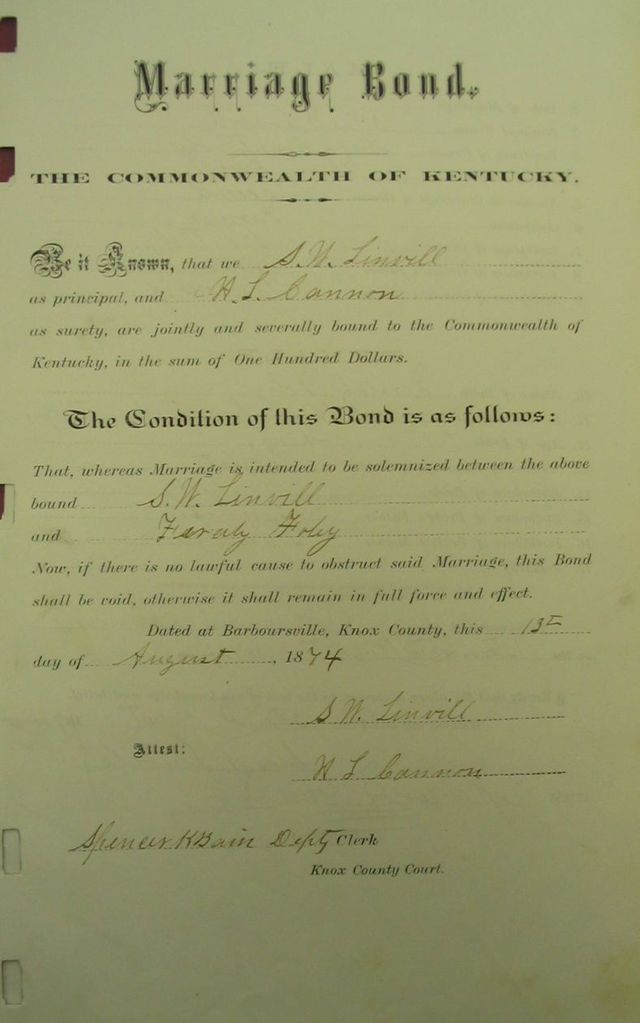 Marriage Bond.
THE COMMONWEALTH OF KENTUCKY.
Be it Known, that we S. W. Linvill
as principal, and H. L. Cannon
as surety, are jointly and severally bound to the Commonwealth of
Kentucky, in the sum of One Hundred Dollars.
The Condition of this Bond is as follows:
That, whereas Marriage is intended to be solemnized between the above
bound S. W. Linvill
and Foley
Now, if there is no lawful cause to obstruct said Marriage, this Bond
shall be void, otherwise it shall remain in full force and effect.
Dated at Barboursville, Knox County, this 13th
day of August, 1874
S W. Linvill
Attest:
H L Cannon
Spencer K Bain Depty Clerk
Knox County Court.